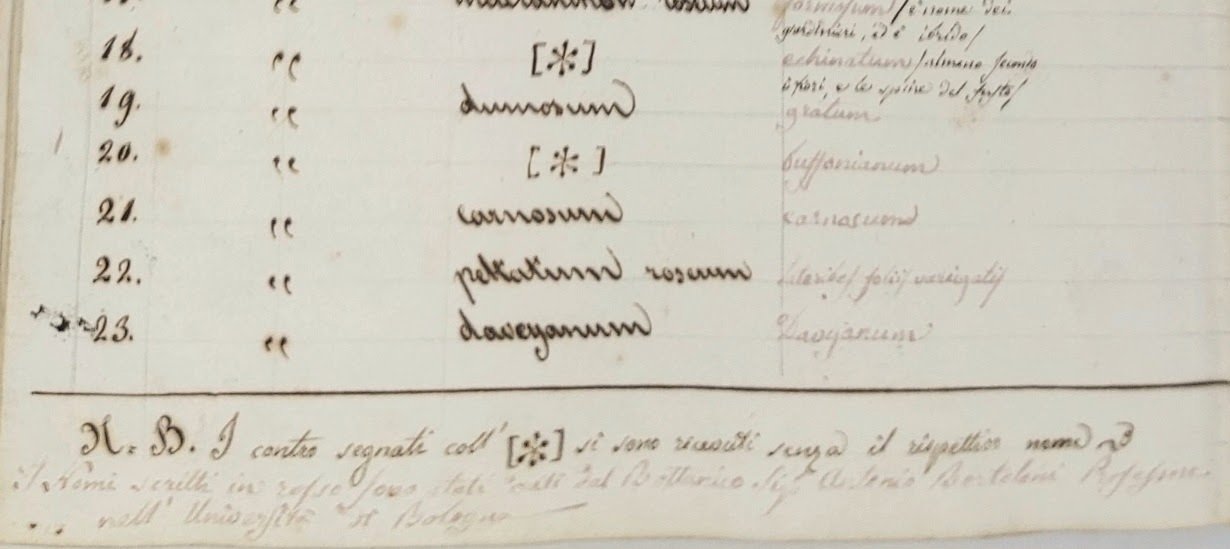 roseum formosum / è nome dei
giardinieri, ed è ibrido /
18. " [*] echinatum / almeno secondo
i fiori, e le spine del fusto /
19. " dumosum gratum
20. " [*] Buffonianum
21. " carnosum carnosum
22. " peltatum roseum foliis variegatis
23. " daveyanum Daveyanum
N. B. I contro segnati coll' [*] si sono ricevuti senza il rispettivo nome
i Nomi scritti in rosso sono stati dati dal Bottanico Sigr Antonio Bertoloni Professore
nell' Università di Bologna